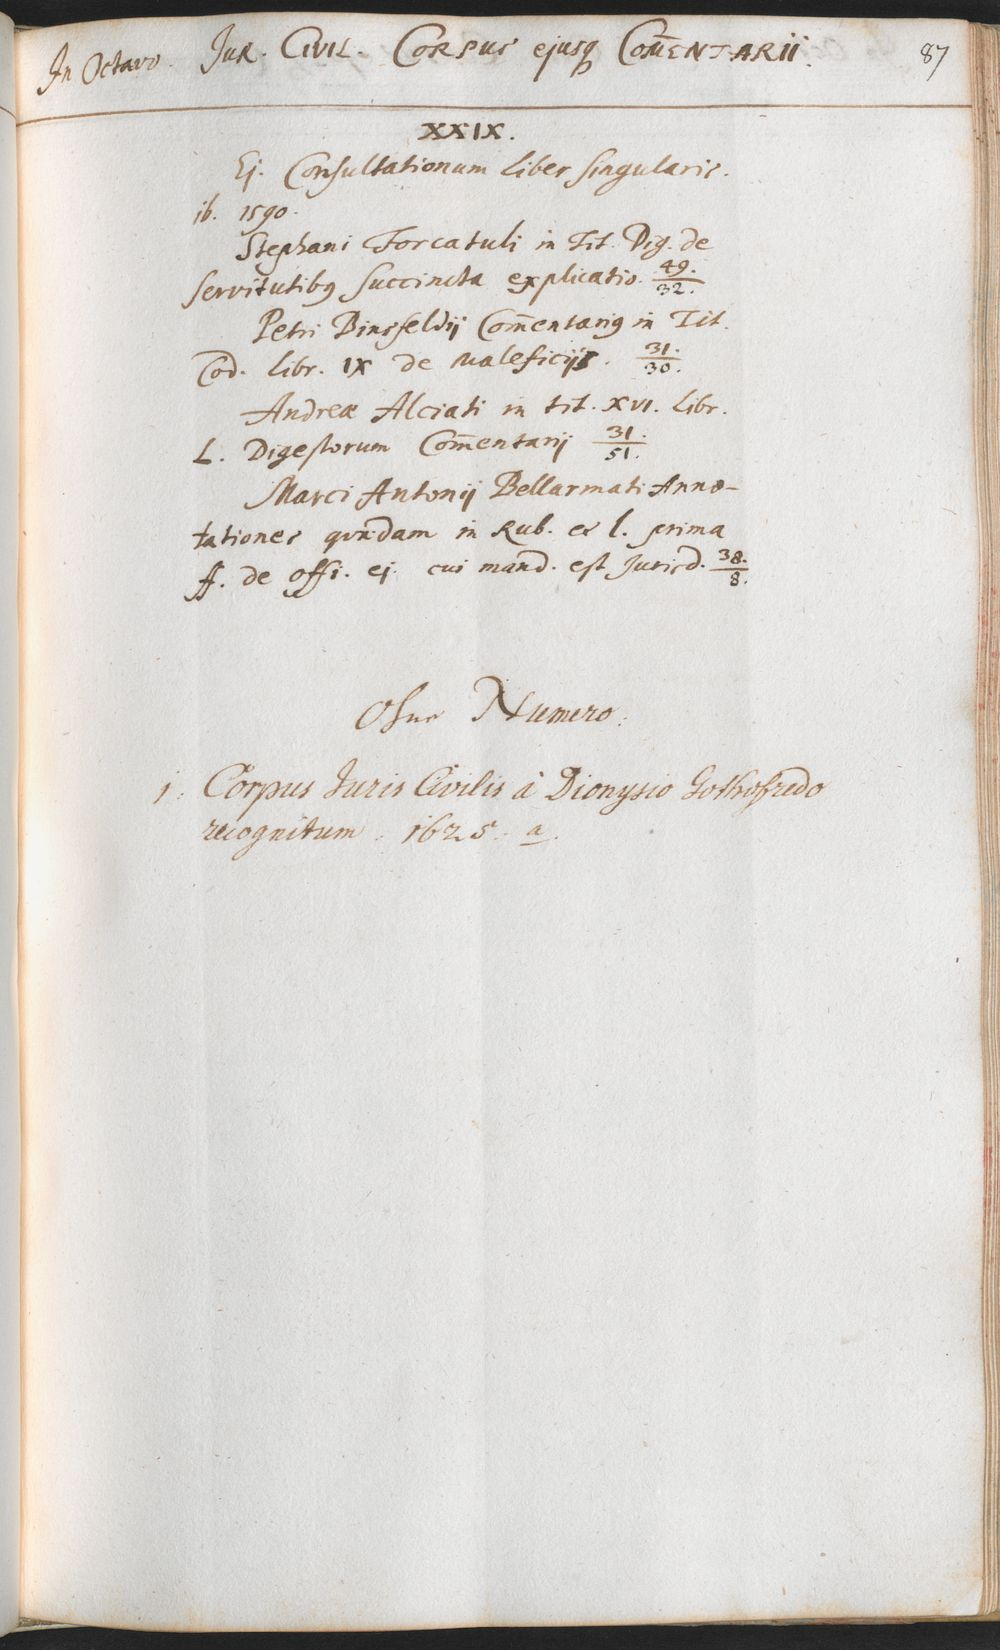 In Octavo. Jur. Civil. Corpus ejusq Com̄entarii. 87
XXIX.
Ej. Consultationum liber singularis.
ib. 1590.
Stephani Forcatuli in Tit. Dig. de
servitutibꝰ succincta explicatio. 49./32.
Petri Binsfeldij Com̄entariꝰ in Tit.
Cod. libr. IX de maleficijs. 31./30.
Andreæ Alciati in tit. XVI. libr.
L. Digestorum Com̄entarij 31./51.
Marci Antonij Bellarmati Anno-
tationes quædam in Rub. et l. prima
ff. de offi. ej. cui mand. est Jurisd. 38./8.
Osne Numero.
1. Corpus Juris Civilis à Dionysio Gothofredo
recognitum. 1625. a.